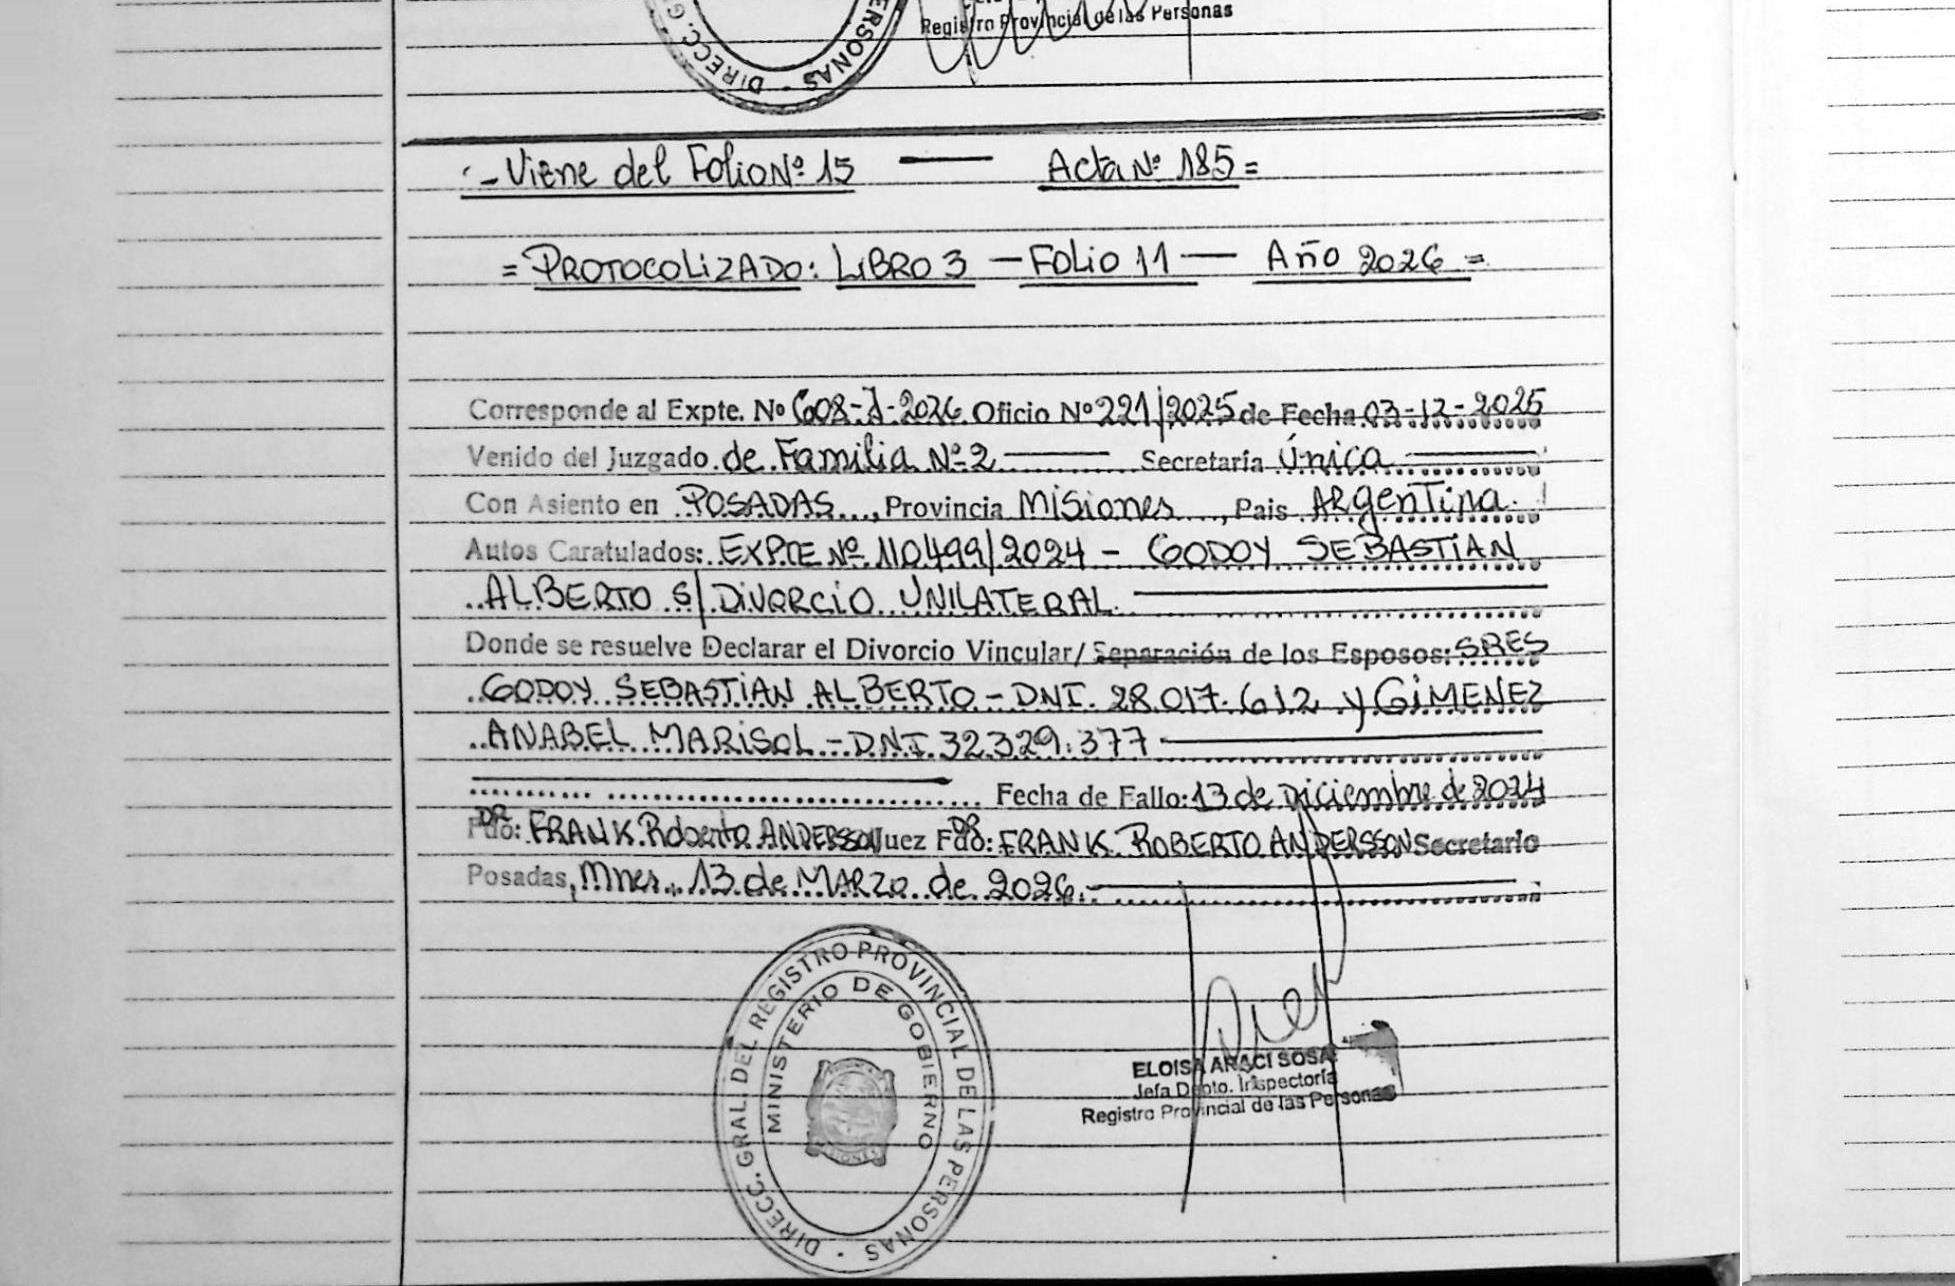 DIRECC. G
ERSONAS
Registro Provincial de las Personas
- Viene del Folio Nº 15 — Acta Nº 185 =
= PROTOCOLIZADO: LIBRO 3 — FOLIO 11 — AÑO 2026 =
Corresponde al Expte. Nº 608-J-2026 Oficio Nº 221/2025 de Fecha 03-12-2025
Venido del Juzgado de Familia Nº 2 — Secretaría Única —
Con Asiento en POSADAS, Provincia Misiones, Pais Argentina.
Autos Caratulados: EXPTE Nº 110499/2024 - GODOY SEBASTIAN
ALBERTO S/ DIVORCIO UNILATERAL. —
Donde se resuelve Declarar el Divorcio Vincular/ Separación de los Esposos: SRES
GODOY SEBASTIAN ALBERTO - DNI. 28.017.612 y GIMENEZ
ANABEL MARISOL - D.N.I. 32.329.377 —
Fecha de Fallo: 13 de Diciembre de 2024
Fdo: DR FRANK Roberto ANDERSSON Juez Fdo: DR FRANK ROBERTO ANDERSSON Secretario
Posadas, Mnes., 13 de MARZO de 2026. —
DIRECC. GRAL. DEL REGISTRO PROVINCIAL DE LAS PERSONAS
MINISTERIO DE GOBIERNO
ELOISA ARACI SOSA
Jefa Dpto. Inspectoría
Registro Provincial de las Personas